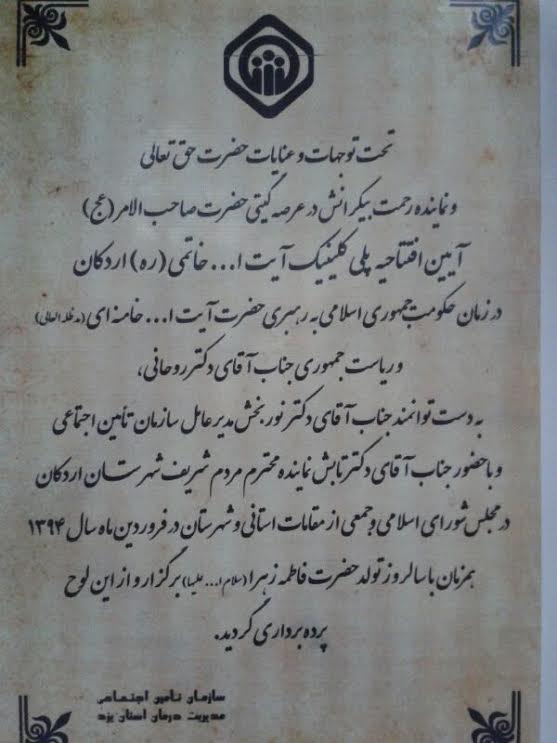 تحت توجهات و عنایات حضرت حق تعالی
و نماینده رحمت بیکرانش در عرصه گیتی حضرت صاحب الامر (عج)
آیین افتتاحیه پلی کلینیک آیت ا... خاتمی (ره) اردکان
در زمان حکومت جمهوری اسلامی به رهبری حضرت آیت ا... خامنه ای (مد ظله العالی)
و ریاست جمهوری جناب آقای دکتر روحانی،
به دست توانمند جناب آقای دکتر نوربخش مدیر عامل سازمان تأمین اجتماعی
و با حضور جناب آقای دکتر تابش نماینده محترم مردم شریف شهرستان اردکان
در مجلس شورای اسلامی و جمعی از مقامات استانی و شهرستان در فروردین ماه سال ۱۳۹۴
همزمان با سالروز تولد حضرت فاطمه زهرا (سلام ا... علیها) برگزار و از این لوح
پرده برداری گردید.
سازمان تامین اجتماعی
مدیریت درمان استان یزد